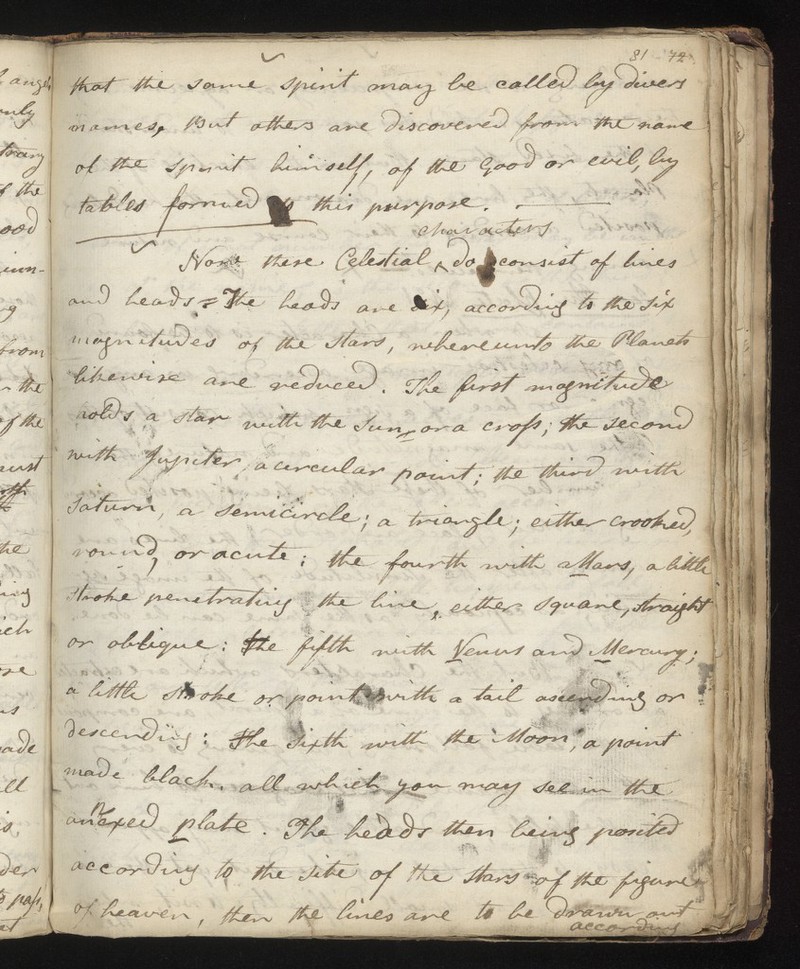 81 72
that the same spirit may be called by divers
names, But others are discovered from the name
of the spirit himself, of the Good or evil, by
tables formed to this purpose.
characters
Now these Celestial ^ do consist of lines
and heads = The heads are six, according to the six
magnitudes of the stars, whereunto the Planets
likewise are reduced. The first magnitude
holds a star with the Sun, or a cross; the second
with Jupiter, a circular point; the third with
Saturn, a semicircle; a triangle; either crooked,
round, or acute; the fourth with Mars, a little
stroke penetrating the line, either square, straight
or oblique: the fifth with Venus and Mercury;
a little stroke or point with a tail ascending or
descending: The sixth with the Moon, a point
made black. all which you may see in the
annexed plate. The heads then being posited
according to the site of the stars of the figure
of heaven, then the lines are to be drawn out
according
l ange
only
trary
f the
ood
from
the
of the
must
the
ich
us
made
ill
is
der
to pass,